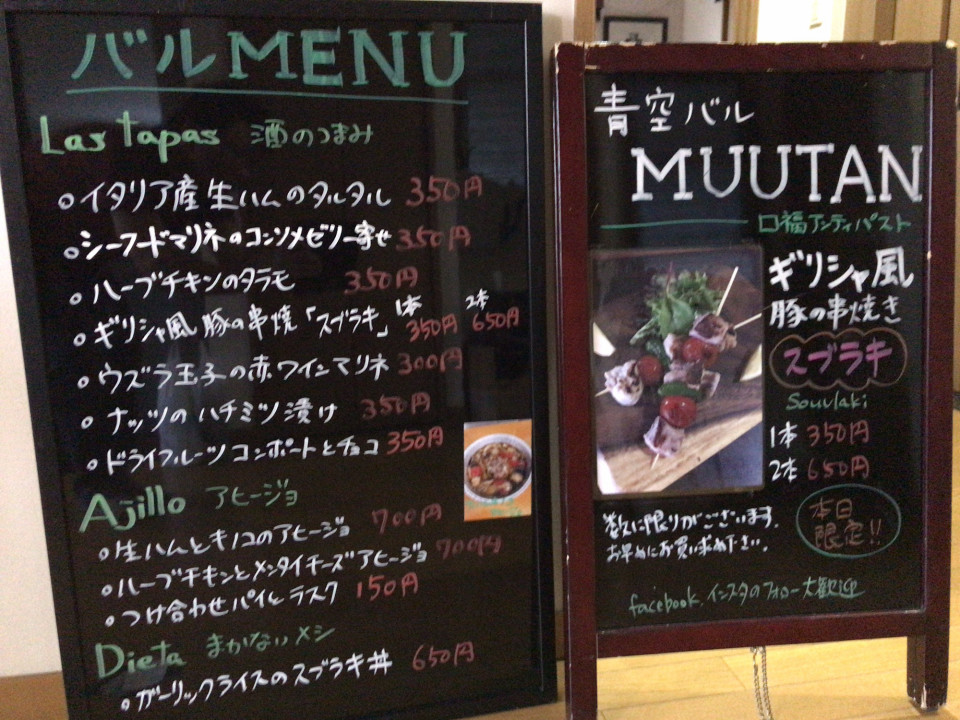 バルMENU
Las tapas 酒のつまみ
○イタリア産生ハムのタルタル 350円
○シーフードマリネのコンソメゼリー寄せ 350円
○ハーブチキンのタラモ 350円
○ギリシャ風豚の串焼「スブラキ」 1本 350円 2本 650円
○ウズラ玉子の赤ワインマリネ 300円
○ナッツのハチミツ漬け 350円
○ドライフルーツコンポートとチョコ 350円
Ajillo アヒージョ
○生ハムとキノコのアヒージョ 700円
○ハーブチキンとメンタイチーズアヒージョ 700円
○つけ合わせパイとラスク 150円
Dieta まかないメシ
○ガーリックライスのスブラキ丼 650円
青空バル
MUUTAN
口福アンティパスト
ギリシャ風
豚の串焼き
スブラキ
Souvlaki
1本 350円
2本 650円
数に限りがございます。
お早めにお買い求め下さい。
本日
限定!!
facebook.インスタのフォロー大歓迎